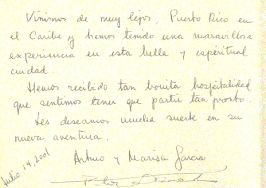 Vinimos de muy lejos, Puerto Rico en
el Caribe y hemos tenido una maravillosa
experiencia en esta bella y espiritual
cuidad.
Hemos recibido tan bonita hospitalidad
que sentimos tener que partir tan pronto.
Les deseamos mucha suerte en su
nueva aventura.
Arturo y Marisa Garcia
Julio 14, 2001